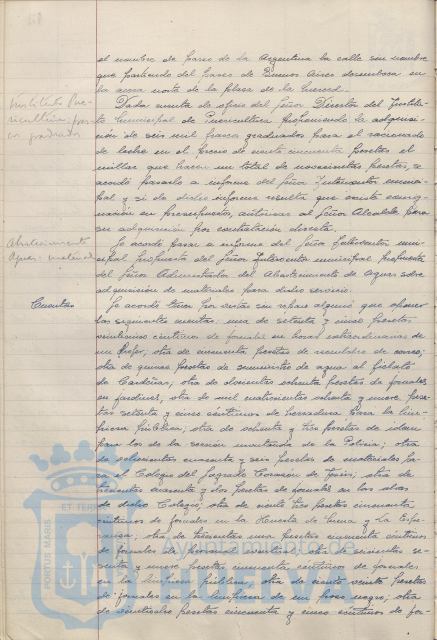 el nombre de paseo de la Argentina la calle sin nombre
que partiendo del paseo de Buenos Aires desemboca en
la acera norte de la plaza de la
Instituto Pue-
ricultura, fras-
cos graduados
Dada cuenta de oficio del Señor Director del Institu-
to municipal de Puericultura proponiendo la adquisi-
ción de seis mil frascos graduados para el racionado
de leche en el precio de ciento cincuenta pesetas el
millar que hacen un total de novecientas pesetas, se
acordó pasarlo a informe del Señor Interventor munici-
pal y si de dicho informe resulta que existe consig-
nación en presupuesto, autorizar al Señor Alcalde para
su adquisición por contratación directa.
Abastecimiento
Aguas: material
Se acordó pasar a informe del Señor Interventor muni-
cipal propuesta del Señor Interventor municipal propuesta
del Señor Administrador del Abastecimiento de Aguas sobre
adquisición de materiales para dicho servicio.
Cuentas
Se acordó tener por vistas sin reparo alguno que oponer
las siguientes cuentas: una de setenta y cinco pesetas
veinticinco céntimos de jornales en horas extraordinarias de
un chofer; otra de cincuenta pesetas de reembolso de correo;
otra de quince pesetas de suministro de agua al fielato
de Cardeñas; otra de doscientas ochenta pesetas de jornales
en jardines; otra de mil cuatrocientas ochenta y nueve pese-
tas setenta y cinco céntimos de herradura para la lim-
pieza pública; otra de ochenta y tres pesetas de idem
para los de la sección montada de la Policía; otra
de ochocientas cuarenta y seis pesetas de materiales pa-
ra el Colegio del Sagrado Corazón de Jesús; otra de
trescientas cuarenta y dos pesetas de jornales en las obras
de dicho Colegio; otra de ciento tres pesetas cincuenta
céntimos de jornales en la
otra de trescientas una pesetas cincuenta céntimos
de jornales de personal eventual; otra de
y nueve pesetas cincuenta céntimos de jornales
en la limpieza pública; otra de ciento veinte pesetas
de jornales en la limpieza de un pozo negro; otra
de veintiseis pesetas cincuenta y cinco céntimos de jor-
PORTUS MARIS
ET TERR
Ayuntamiento de